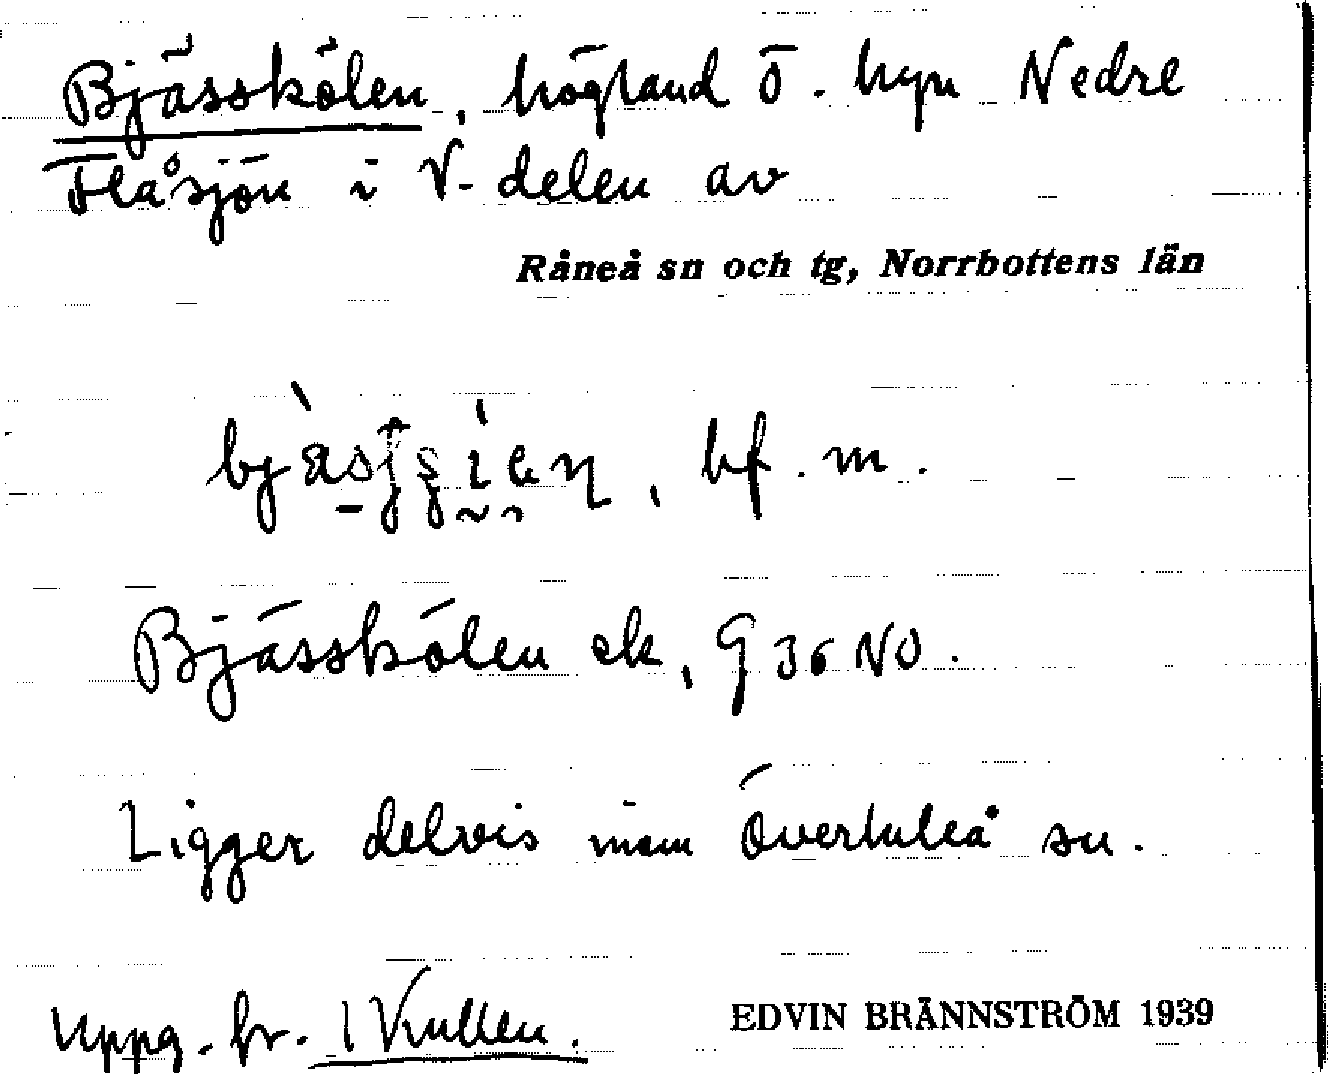 Bjässkölen, högland Ö. hyn Nedre
Flåsjön i V-delen av
Råneå sn och tg, Norrbottens län
hf. m.
Bjässkölen ek, 936 NO.
Ligger delvis inom Överluleå sn.
Uppg. fr. 1 Kullen.
EDVIN BRÄNNSTRÖM 1939